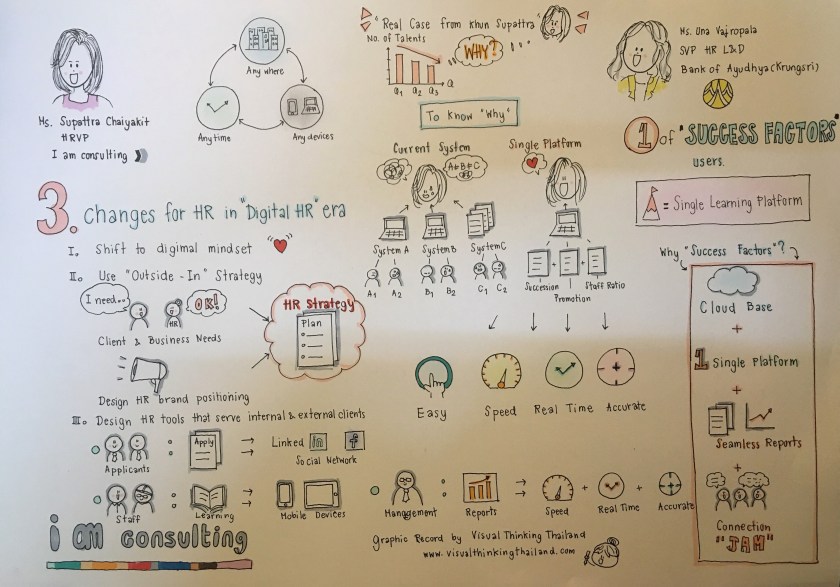 Ms. Supattra Chaiyakit
HRVP
I am consulting
Any where
Anytime
Any devices
3. Changes for HR in "Digital HR" era
I. Shift to digimal mindset
II. Use "Outside-In" Strategy
I need..
OK!
HR
Client & Business Needs
Design HR brand positioning
HR Strategy
Plan
III. Design HR tools that serve internal & external clients
Applicants
:
Apply
Linked in f
Social Network
Staff
:
Learning
Mobile Devices
i am consulting
"Real Case from Khun Supattra"
No. of Talents
Q1 Q2 Q3 Q
WHY?
To Know "Why"
Current System
A+B+C
System A
System B
System C
A1 A2 B1 B2 C1 C2
Single Platform
Succession
+
Promotion
+
Staff Ratio
Easy
Speed
Real Time
Accurate
Management
:
Reports
Speed
+
Real Time
+
Accurate
Graphic Record by Visual Thinking Thailand
www.visualthinkingthailand.com
Ms. Ona Vajropala
SVP HR L&D
Bank of Ayudhya (Krungsri)
1 of "SUCCESS FACTORS"
users.
= Single Learning Platform
Why "Success Factors"?
Cloud Base
+
1 Single Platform
+
Seamless Reports
+
Connection
"JAM"